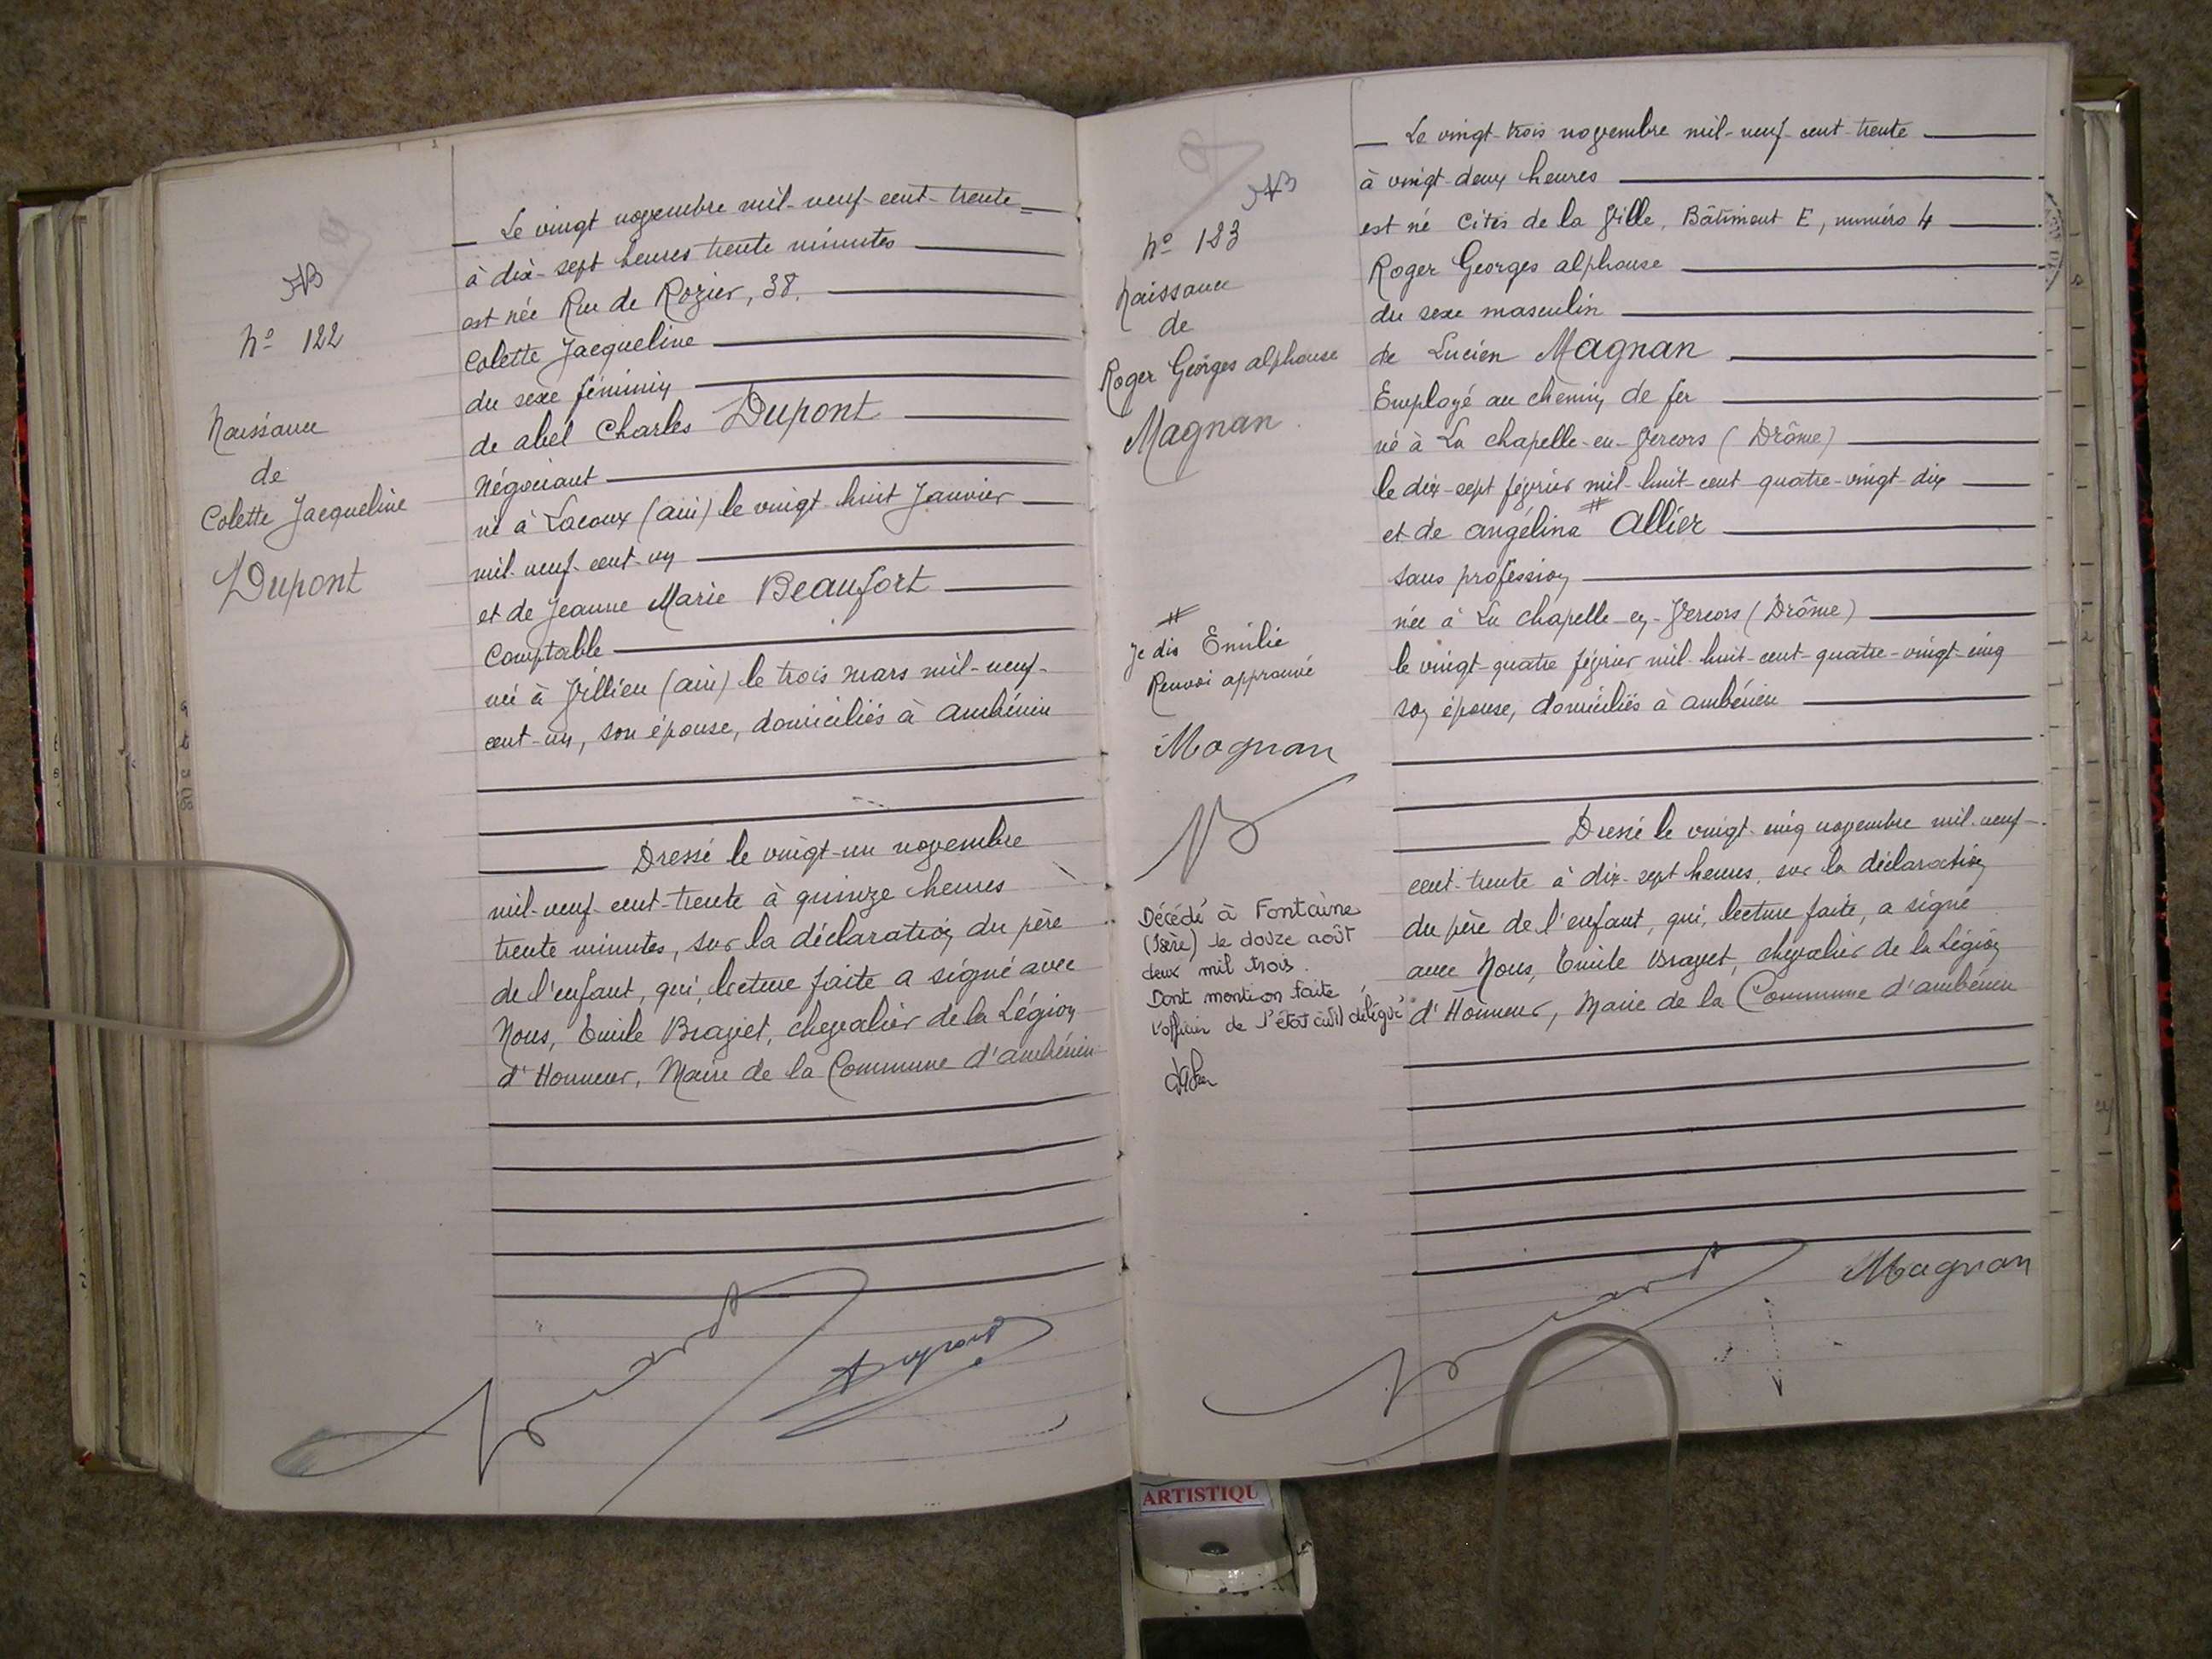 nº 122
Naissance
de
Colette Jacqueline
Dupont
Le vingt novembre mil-neuf-cent-trente
à dix-sept heures trente minutes
est née Rue de Rozier, 38.
Colette Jacqueline
du sexe féminin
de abel Charles Dupont
négociant
né à Lacoux (ain) le vingt huit Janvier
mil-neuf-cent-un
et de Jeanne Marie Beaufort
Comptable
née à Villieu (ain) le trois mars mil-neuf-
cent-un, son épouse, domiciliés à ambérieu
Dressé le vingt-un novembre
mil-neuf-cent-trente à quinze heures
trente minutes, sur la déclaration du père
de l'enfant, qui, lecture faite a signé avec
Nous, Emile Bravet, chevalier de la Légion
d'Honneur, Maire de la Commune d'ambérieu
nº 123
Naissance
de
Roger Georges alphonse
Magnan
#
Je dis Emilie
Renvoi approuvé
Magnan
Décédé à Fontaine
(Isère) le douze août
deux mil trois.
Dont mention faite
L'officier de l'état civil délégué
Le vingt-trois novembre mil-neuf-cent-trente
à vingt-deux heures
est né Cités de la Ville, Bâtiment E, numéro 4
Roger Georges alphonse
du sexe masculin
de Lucien Magnan
Employé au chemin de fer
né à La chapelle-en-Vercors (Drôme)
le dix-sept février mil-huit-cent-quatre-vingt-dix
et de angélina # Allier
sans profession
née à La chapelle-en-Vercors (Drôme)
le vingt-quatre février mil-huit-cent-quatre-vingt-cinq
son épouse, domiciliés à ambérieu
Dressé le vingt-cinq novembre mil-neuf-
cent-trente à dix-sept heures, sur la déclaration
du père de l'enfant, qui, lecture faite, a signé
avec Nous, Emile Bravet, chevalier de la Légion
d'Honneur, Maire de la Commune d'ambérieu
Magnan
ARTISTIQU